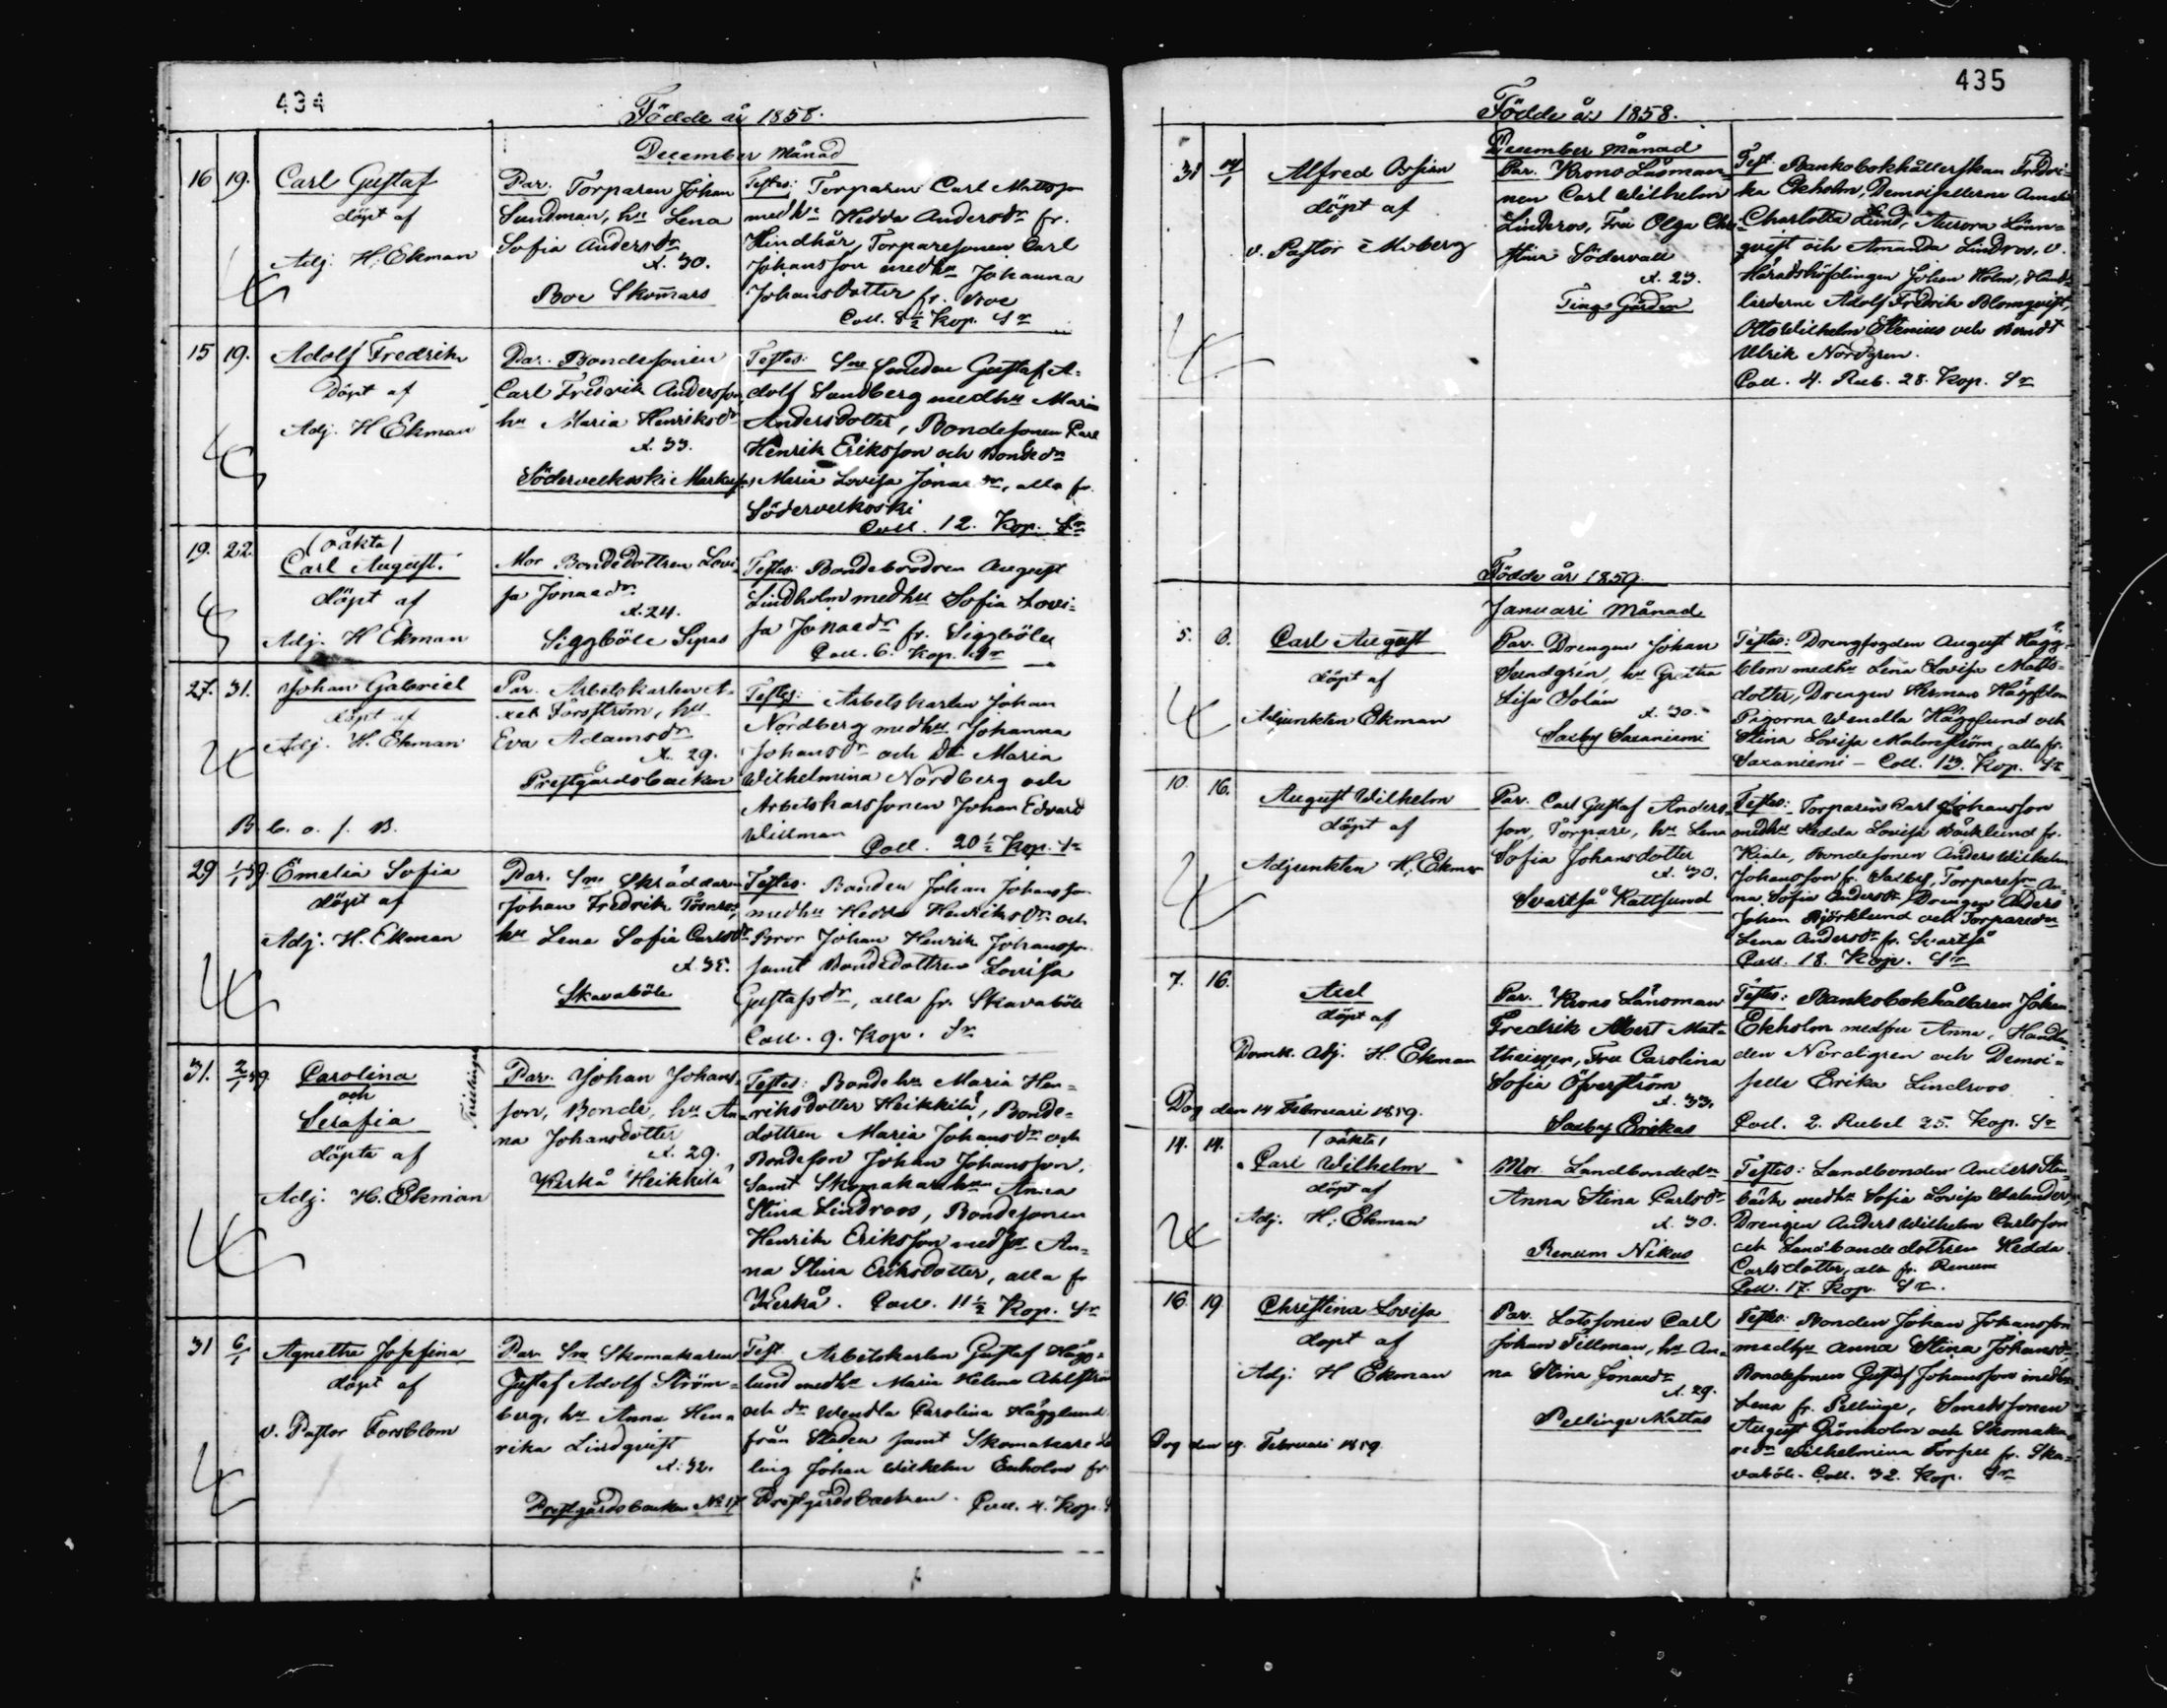 434
Födde år 1858.
December Månad
16 19. Carl Gustaf
döpt af
Adj. H. Ekman
Par. Torparen Johan
Sundman, hu Lena
Sofia Andersdr
A. 30.
Boe Skomars
Testes: Torparen Carl Mattsson
med hu Hedda Andersdr fr.
Hindhår, Torparesonen Carl
Johansson med hu Johanna
Johansdotter fr. Boe
Coll. 8½ Kop. Sr
15 19. Adolf Fredrik
Döpt af
Adj. H Ekman
Par. Bondesonen
Carl Fredrik Andersson,
hu Maria Henriksdr
A. 33.
Söderveckoski Markusas
Testes: Sne Smeden Gustaf A-
dolf Sundberg med hu Maria
Andersdotter, Bondesonen Carl
Henrik Eriksson och Bondedr
Maria Lovisa Jonasdr, alla fr.
Söderveckoski
Coll. 12. Kop. Sr
19. 22. (oäkta)
Carl August.
döpt af
Adj. H Ekman
Mor Bondedottren Lovi-
sa Jonasdr
A. 24.
Siggböle Sipas
Testes: Bondebrodren August
Lindholm med hu Sofia Lovi-
sa Jonasdr fr. Siggböle
Coll. 6. Kop. Sr
27. 31. Johan Gabriel
döpt af
Adj. H. Ekman
B. b. o. f. B.
Par. Arbetskarlen A-
xel Forsström, hu
Eva Adamsdr
A. 29.
Prestgårdsbacken
Testes: Arbetskarlen Johan
Nordberg med hu Johanna
Johansdr och Dr Maria
Wilhelmina Nordberg och
Arbetskarssonen Johan Edvard
Willman
Coll. 20½ Kop. Sr
29 1/1 59. Emelia Sofia
döpt af
Adj. H. Ekman
Par. Sne Skräddaren
Johan Fredrik
hu Lena Sofia Carlsdr
A. 35.
Skavaböle
Testes. Bonden Johan Johansson
med hu Hedda Henriksdr och
Bror Johan Henrik Johansson
samt Bondedottren Lovisa
Gustafsdr, alla fr. Skavaböle
Coll. 9. Kop. Sr
31. 2/1 59. Carolina
och
Serafia
Tvillingar
döpta af
Adj. H. Ekman
Par. Johan Johans-
son, Bonde, hu An-
na Johansdotter
A. 29.
Kerkå Heikkilä
Testes: Bondehu Maria Hen-
riksdotter Heikkilä, Bonde-
dottren Maria Johansdr och
Bondeson Johan Johansson,
Samt Skomakarehu Anna
Stina Lindroos, Bondesonen
Henrik Eriksson med hu An-
na Stina Eriksdotter, alla fr
Kerkå. Coll. 11½ Kop. Sr
31 6/1 Agnetha Josefina
döpt af
v. Pastor Forsblom
Par. Sne Skomakaren
Gustaf Adolf Ström-
berg, hu Anna Hen-
rika Lindqvist
A. 32.
Prestgårdsbacken No 17
Test. Arbetskarlen Gustaf Hägg-
lund med hu Maria Helena
och dr Wendla Carolina Hägglund
från Staden samt Skomakare
ling Johan Wilhelm Enholm fr
Prestgårdsbacken. Coll. 4. Kop.
435
Födde år 1858.
December Månad
31 Alfred Ossian
döpt af
v. Pastor Moberg
Par. Krono Länsman-
nen Carl Wilhelm
Linderos, Fru Olga Chri-
stina Södervall
A. 23.
Tings Gården
Test. Bankobokhållerskan Fredri-
ka Ekholm, Demoisellerna Amalia
Charlotta Lund, Aurora Lönn-
qvist och Amanda Lindros, v.
Häradshöfdingen Johan Holm, Hand-
landerne Adolf Fredrik Blomqvist,
Otto Wilhelm Stenius och Berndt
Ulrik Nordgren.
Coll. 4. Rub. 28. Kop. Sr
Födde år 1859.
Januari Månad
5. 6. Carl August
döpt af
Adjunkten Ekman
Par. Drengen Johan
Sundgrén, hu Gretha
Lisa Solén
A. 30.
Saxby Saxaniemi
Testes: Drengfogden August Hägg-
blom med hu Lena Lovisa Matts-
dotter, Drengen Herman Häggblom
Pigorna Wendla Hägglund och
Stina Lovisa Malmström, alla fr.
Saxaniemi – Coll. 13. Kop. Sr
10. 16. August Wilhelm
döpt af
Adjunkten H. Ekman
Par. Carl Gustaf Anders-
son, Torpare, hu Lena
Sofia Johansdotter
A. 30.
Svartså Kattsund
Testes: Torparen Carl Johansson
med hu Hedda Lovisa Bäcklund fr.
Kiala, Bondesonen Anders Wilhelm
Johansson fr. Saxby, Torparedr An-
na Sofia Andersdr, Drengen Anders
Johan Björklund och Torparedr
Lena Andersdr fr. Svartså
Coll. 18. Kop. Sr
7. 16. Axel
döpt af
Domk. Adj. H. Ekman
Dog den 14 Februari 1859.
Par. Krono Länsman
Fredrik Albert Mat-
theiszen, Fru Carolina
Sofia Öfverström
A. 33.
Saxby Erikas
Testes: Bankobokhållaren Johan
Ekholm med fru Anna, Handlan-
den Nordgren och Demoi-
selle Erika Lindroos
Coll. 2. Rubel 25. Kop. Sr
14. 14. (oäkta)
Carl Wilhelm
döpt af
Adj. H. Ekman
Mor. Landbondedr
Anna Stina Carlsdr
A. 30.
Renum Nikus
Testes: Landbonden Anders Sten-
bäck med hu Sofia Lovisa Walander,
Drengen Anders Wilhelm Carlsson
och Landbondedottren Hedda
Carlsdotter, alla fr. Renum
Coll. 17. Kop. Sr.
16. 19 Christina Lovisa
döpt af
Adj. H Ekman
Dog den 19. Februari 1859.
Par. Lotssonen Carl
Johan Tillman, hu An-
na Stina Jonasdr
A. 29.
Pellinge Mattas
Testes: Bonden Johan Johansson
med hu Anna Stina Johansdr,
Bondesonen Gustaf Johansson med hu
Lena fr. Pellinge, Smedssonen
August Grönholm och Skomaka-
redr Wilhelmina fr. Ska-
vaböle. Coll. 32. Kop. Sr